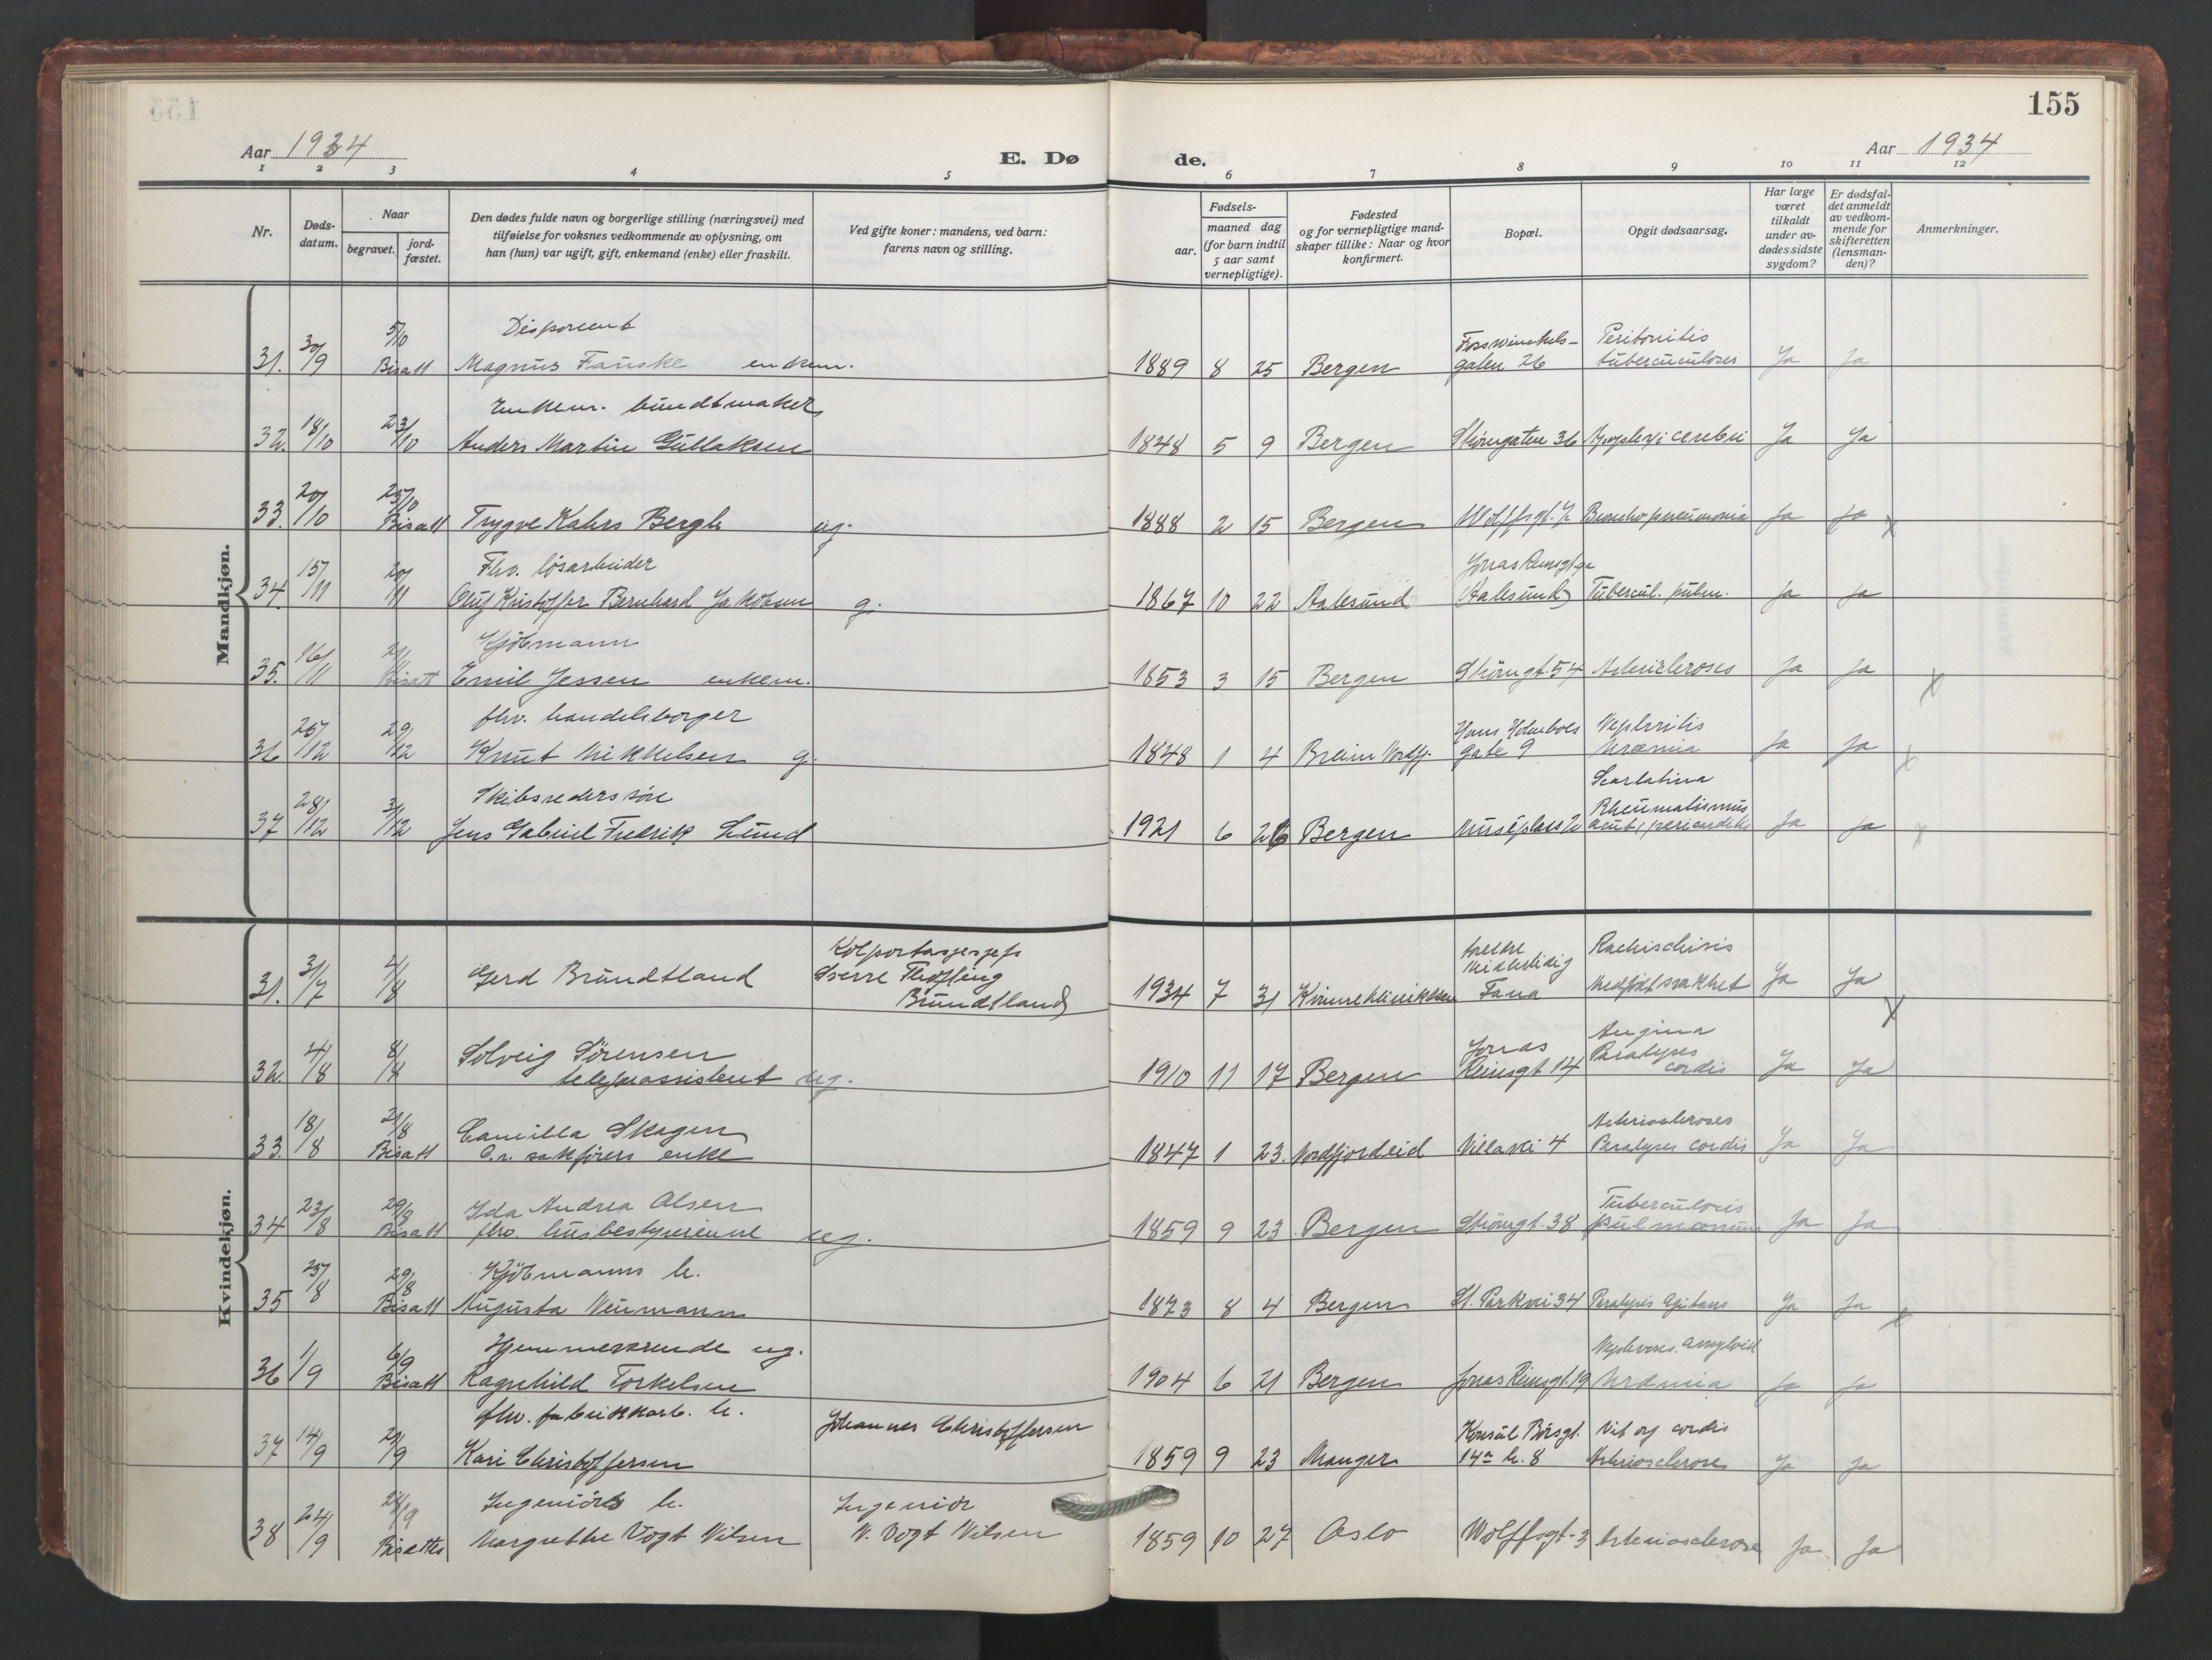 155
Aar 1934
E. Dø
de.
Aar 1934
1 2 3 4 5 6 7 8 9 10 11 12
Nr.
Døds-
datum.
Naar
begravet.
jord-
fæstet.
Den dødes fulde navn og borgerlige stilling (næringsvei) med
tilføielse for voksnes vedkommende av oplysning, om
han (hun) var ugift, gift, enkemand (enke) eller fraskilt.
Ved gifte koner: mandens, ved barn:
farens navn og stilling.
Fødsels-
aar.
maaned dag
(for barn indtil
5 aar samt
vernepligtige).
Fødested
og for vernepligtige mand-
skaper tillike: Naar og hvor
konfirmert.
Bopæl.
Opgit dødsaarsag.
Har læge
været
tilkaldt
under av-
dødes sidste
sygdom?
Er dødsfal-
det anmeldt
av vedkom-
mende for
skifteretten
(lensman-
den)?
Anmerkninger.
Mandkjøn.
5/10 Disponent Fosswinckels- Peritonitis
31. 30/9 Bisatt Magnus Fauske enkem. 1889 8 25 Bergen gaten 26 tuberculoses Ja Ja
Enkem. bundtmaker
32. 18/10 23/10 Anders Martin Gullaksen 1848 5 9 Bergen Strømgaten 36 Apoplexi cerebri Ja Ja
25/10
33. 20/10 Bisatt Trygve Kahrs Bergh ug. 1888 2 15 Bergen Wolffsgt. Bronchopneumonia Ja Ja x
Fhv. løsarbeider Jonas Reinsgt
34. 15/11 20/11 Oluf Kristoffer Bernhard Jakobsen g. 1867 10 22 Aalesund (Aalesund) Tubercul. pulm. Ja Ja
Kjøbmann
35. 16/11 Bisatt Emil Jessen enkem. 1853 3 15 Bergen Strømgt. 54 Arteriscleroses Ja Ja x
fhv. handelsborger Hans Holmboes Nephritis
36 25/12 29/12 Knut Mikkelsen g. 1848 1 4 Breim Nordfj. gate 9 Uræmia Ja Ja x
Skibsreders søn Scarlatina
Rheumatismus
37 28/12 31/12 Jens Gabriel Fredrik Lund 1921 6 26 Bergen Muséplass 2 acut, pericarditis Ja Ja x
Kvindekjøn.
Kolportasjesjef Rachischisis
31. 31/7 4/8 Gerd Brundtland Sverre Brundtland 1934 7 31 Kvinneklinikken Fana Medfødt svakhet Ja Ja x
Angina
Solveig Sørensen Jonas Paralyses
32 4/8 8/8 telefonassistent ug. 1910 11 17 Bergen Reinsgt 14 cordis Ja Ja
21/8 Camilla Skagen Arterioscleroses
33. 18/8 Bisatt O.r. sakførers enke 1847 1 23. Nordfjordeid Villavei 4 Paralyses cordis Ja Ja
29/8 Ida Andrea Olsen Tuberculosis
34 23/8 Bisatt fhv. husbestyrerinne ug. 1859 9 23 Bergen Strømgt. 38 pulmonum Ja Ja
29/8 Kjøbmanns h.
35 25/8 Bisatt Augusta Neumann 1873 8 4 Bergen St. Parkvei 34 Paralysis agitans Ja Ja x
6/9 Hjemmeværende ug. amyloid
36 1/9 Bisatt Ragnhild Torkelsen 1904 6 21 Bergen Jonas Reinsgt. 19 Uræmia Ja Ja
fhv. fabrikkarb. h. Johannes Christoffersen Konsul Børsgt. Vit org cordis
37 14/9 Kari Christoffersen 1859 9 23 Manger 14a h. 8 Arteriosclerose Ja Ja
28/9 Ingeniørs h. Ingeniør
38 24/9 Bisattes Margrethe Vogt Nilsen N. Vogt Nilsen 1859 10 27 Oslo Wolffsgt. 3 Arteriosclerose Ja Ja